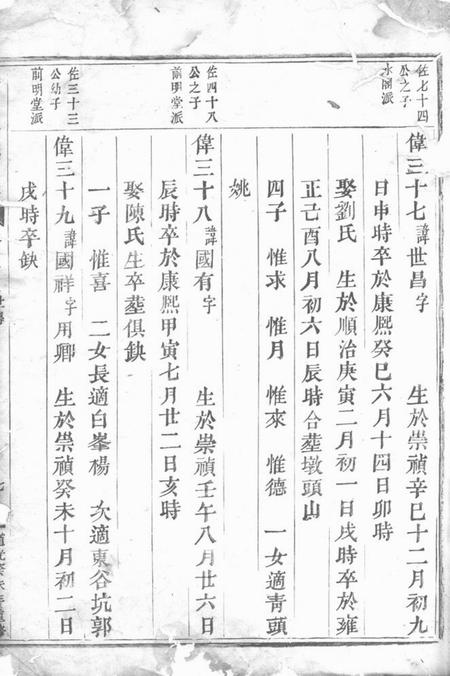 佐七十四
公之子
水閣派
偉三十七諱世昌字　生於崇禎辛巳十二月初九
日申時卒於康熙癸巳六月十四日卯時
娶劉氏　生於順治庚寅二月初一日戌時卒於雍
正己酉八月初六日辰時合塟墩頭山
四子　惟求　惟月　惟來　惟德　一女適靑頭
姚
佐四十八
公之子
前明堂派
偉三十八諱國有字　生於崇禎壬午八月廿六日
辰時卒於康熙甲寅七月廿二日亥時
娶陳氏生卒塟俱缺
一子　惟喜　二女長適白峯楊　次適東谷坑郭
佐三十三
公幼子
前明堂派
偉三十九諱國祥字用卿　生於崇禎癸未十月初二日
戌時卒缺